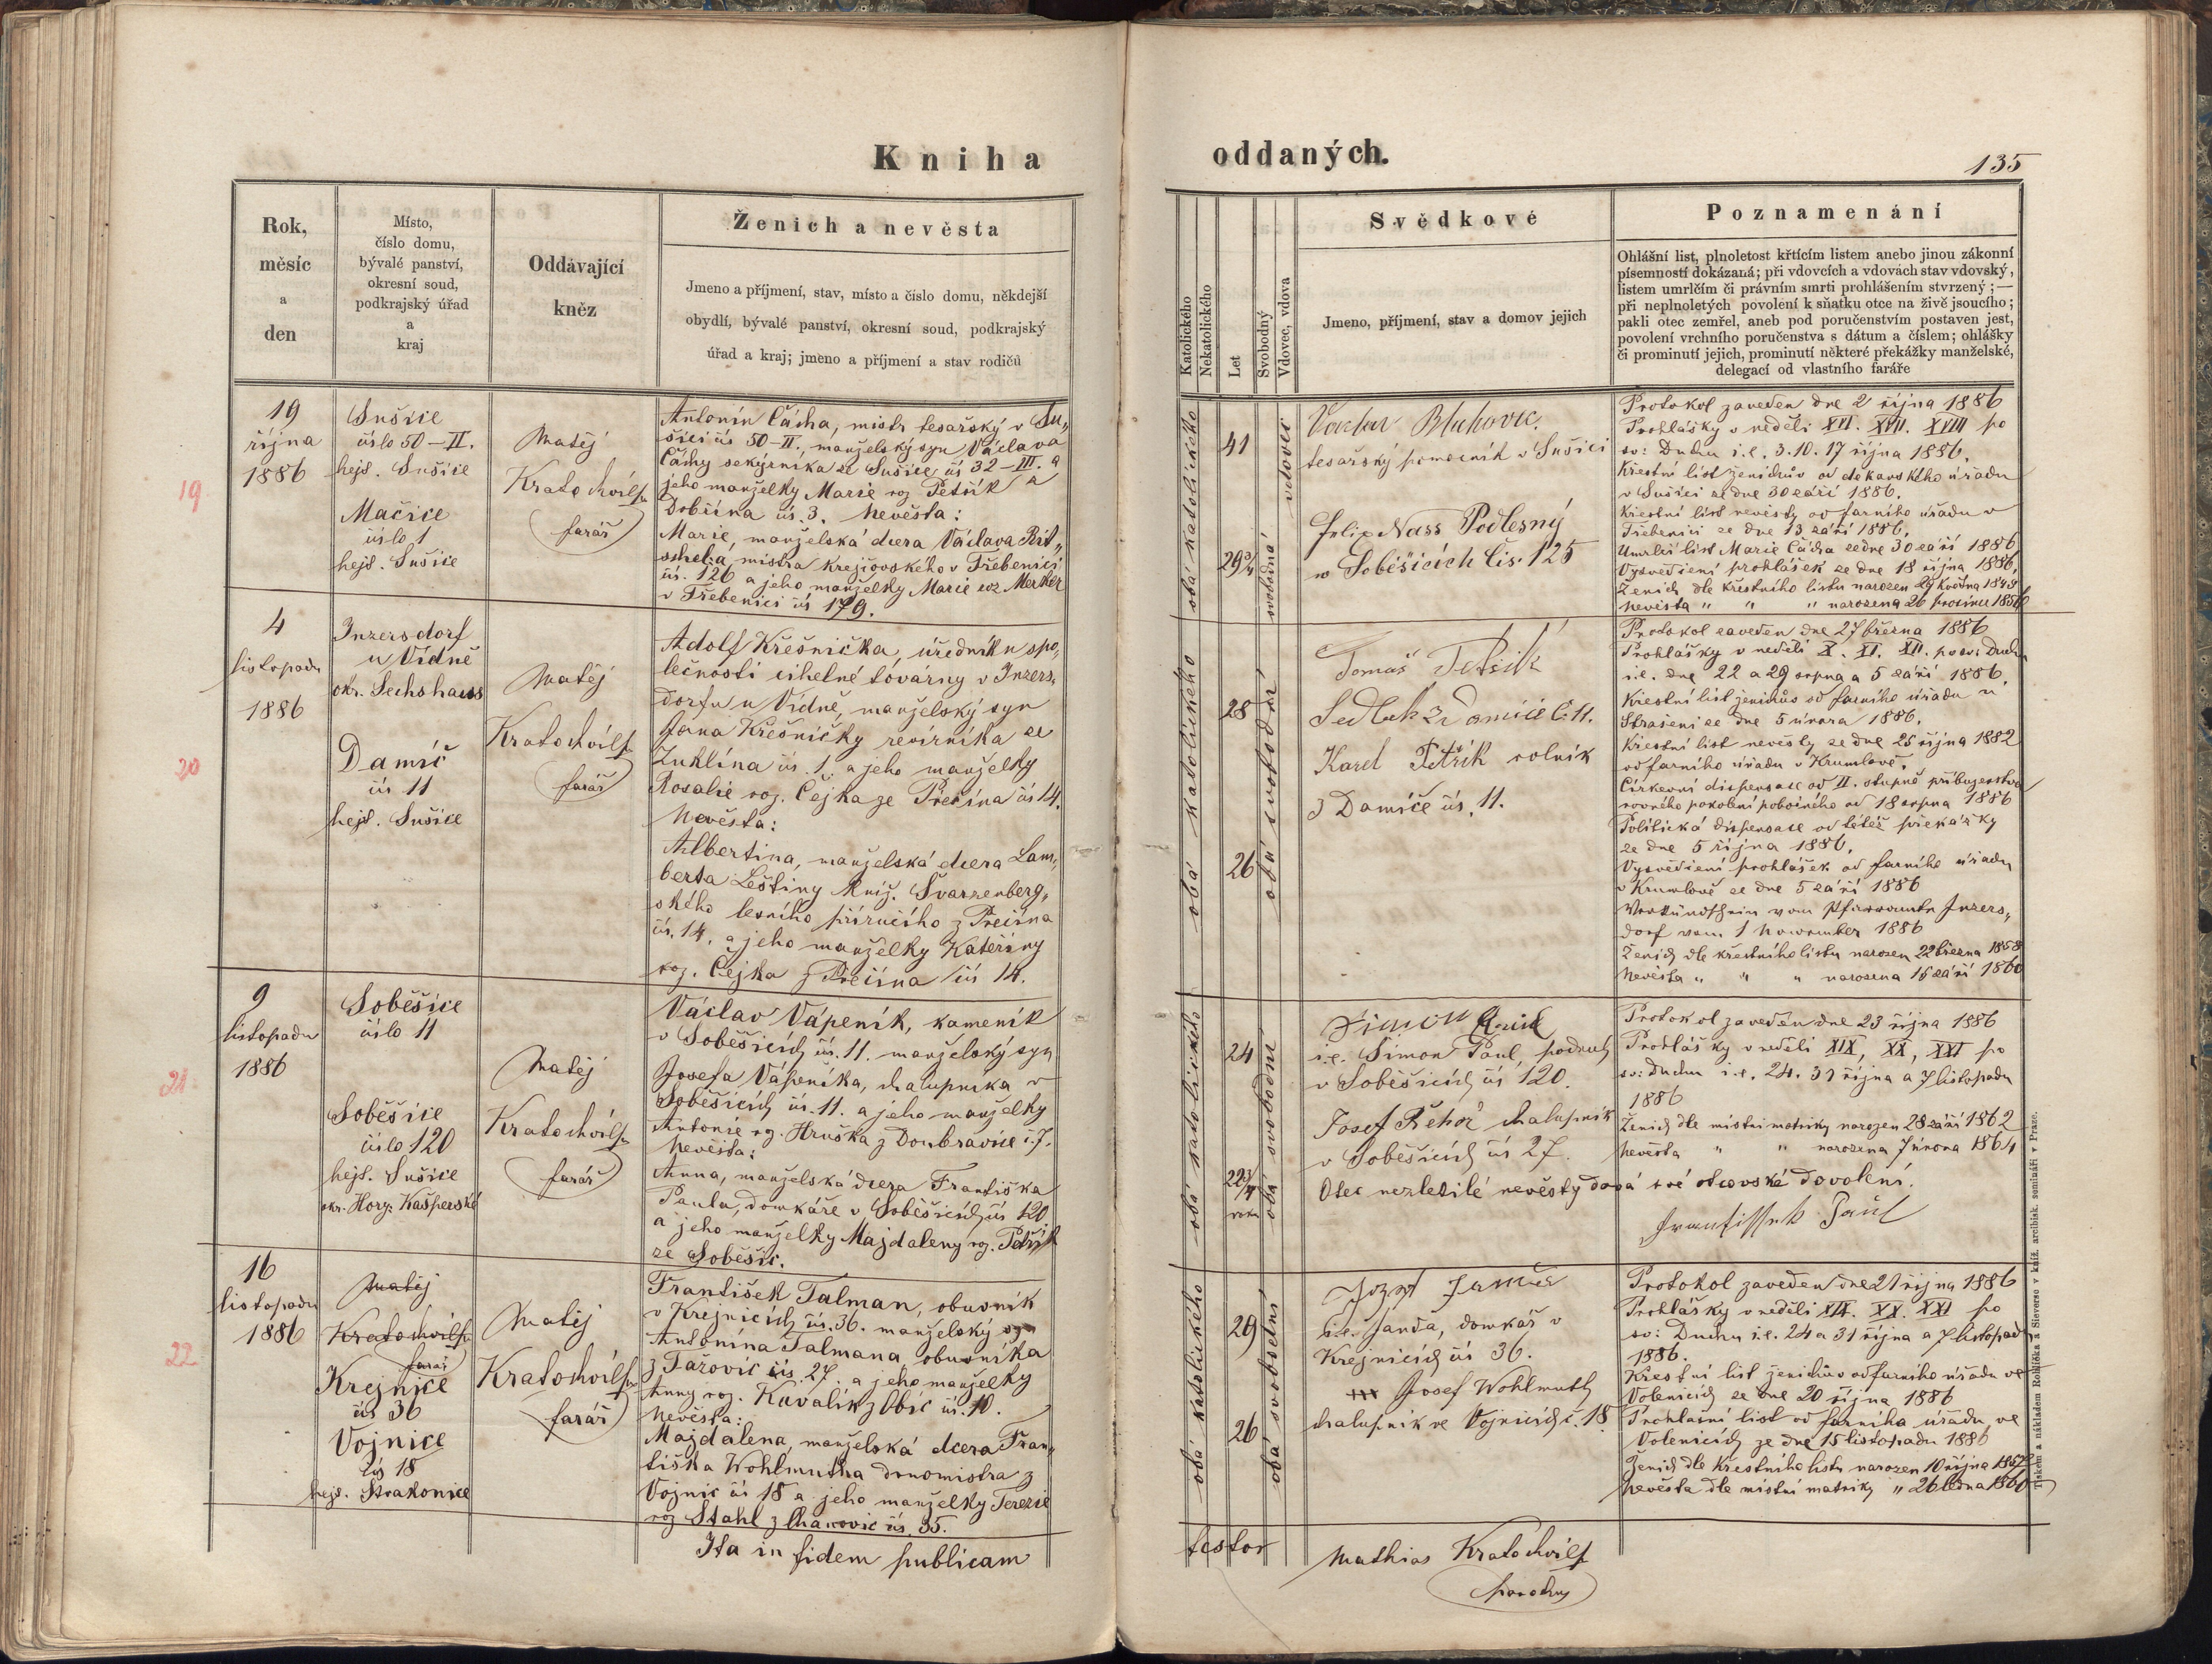 Kniha
oddaných.
135
Rok,
měsíc
a
den
Místo,
číslo domu,
bývalé panství,
okresní soud,
podkrajský úřad
a
kraj
Oddávající
kněz
Ženich a nevěsta
Jmeno a příjmení, stav, místo a číslo domu, někdejší
obydlí, bývalé panství, okresní soud, podkrajský
úřad a kraj; jmeno a příjmení a stav rodičů
Katolického
Nekatolického
Let
Svobodný
Vdovec, vdova
Svědkové
Jmeno, příjmení, stav a domov jejich
Poznamenání
Ohlášní list, plnoletost křtícím listem anebo jinou zákonní
písemností dokázaná; při vdovcích a vdovách stav vdovský,
listem umrlčím či právním smrti prohlášením stvrzený; —
při neplnoletých povolení k sňatku otce na živě jsoucího;
pakli otec zemřel, aneb pod poručenstvím postaven jest,
povolení vrchního poručenstva s dátum a číslem; ohlášky
či prominutí jejich, prominutí některé překážky manželské,
delegací od vlastního faráře
19
19
října
1886
Sušice
číslo 50 – II.
hejt. Sušice
Mačice
číslo 1
hejt. Sušice
Matěj
Kratochvíl
farář
Antonín Čácha, mistr tesařský v Su„
šici čís 50–II., manželský syn Václava
Čáchy sekyrníka ze Sušice čís 32–III. a
jeho manželky Marie roz Petřík z
Dobšína čís. 3. Nevěsta:
Marie, manželská dcera Václava
mistra krejčovského v Třebenici
čís. 126 a jeho manželky Marie roz Merker
v Třebenici čís 179.
obá katolického
41
29
vdovec
svobodná
Václav
tesařský pomocník v Sušici
Felix Nass Podlesný
v Soběšicích čís. 125
Protokol zaveden dne 2 října 1886
Prohlášky v neděli XVI. XVII. XVIII po
sv: Duchu i.e. 3. 10. 17 října 1886.
Křestní list ženichův od děkanského úřadu
v Sušici ze dne 30 září 1886.
Křestní list nevěsty od farního úřadu v
Třebenici ze dne 13 září 1886.
Umrlčí list Marie Čácha ze dne 30 září 1886
Vysvědčení prohlášek ze dne 18 října 1886.
Ženich dle křestního listu narozen 29 května
Nevěsta " " " narozena 26 prosince
20
4
listopadu
1886
Inzersdorf
u Vídně
okr. Sechshaus
Damíč
čís 11
hejt. Sušice
Matěj
Kratochvíl
farář
Adolf Křešnička, úředník u spo„
lečnosti cihelné továrny v Inzers„
dorfu u Vídně, manželský syn
Jana Křešničky revírníka ze
Zuklína čís. 1. a jeho manželky
Rosalie roz. Čejka ze Přečína čís 14.
Nevěsta:
Albertina, manželská dcera Lam„
berta Leštiny kníž. Švarzenberg„
ského lesního příručího z Přečína
čís. 14. a jeho manželky Kateřiny
roz. Čejka z Přečína čís 14.
obá katolického
28
26
obá svobodní
Tomáš Petřík
Sedlák z Damíče č. 11.
Karel Petřík rolník
z Damíče čís. 11.
Protokol zaveden dne 27 března 1886
Prohlášky v neděli X. XI. XII. po sv: Duchu
i.e. dne 22 a 29 srpna a 5 září 1886.
Křestní list ženichův od farního úřadu v
Strašeni ze dne 5 února 1886.
Křestní list nevěsty ze dne 25 října 1882
od farního úřadu v Krumlově.
Církevní dispensace od II. stupně příbuzenstva
rovného pokolení pobočného od 18 srpna 1886
Politická dispensace od téže překážky
ze dne 5 října 1886.
Vysvědčení prohlášek od farního úřadu
v Krumlově ze dne 5 září 1886
Verkündschein vom Pfarramte Inzers„
dorf vom 1 November 1886
Ženich dle křestního listu narozen 22 března 1858
Nevěsta " " " narozena 15 září 1860
21
9
listopadu
1886
Soběšice
číslo 11
Soběšice
číslo 120
hejt. Sušice
okr. Hory Kašperské
Matěj
Kratochvíl
farář
Václav Vápeník, kameník
v Soběšicích čís. 11. manželský syn
Josefa Vápeníka, chalupníka v
Soběšicích čís. 11. a jeho manželky
Antonie roz. Hruška z Doubravice č. 7.
Nevěsta:
Anna, manželská dcera Františka
Paula, domkáře v Soběšicích čís 120
a jeho manželky Majdaleny roz. Petřík
ze Soběšic.
obá katolického
24
22 3/4
roku
obá svobodní
i.e. Šimon Paul, podruh
v Soběšicích čís 120.
Josef Řehoř chalupník
v Soběšicích čís 27.
Otec nezletilé nevěsty dává své otcovské dovolení.
Protokol zaveden dne 23 října 1886
Prohlášky v neděli XIX, XX, XXI po
sv: Duchu i.e. 24. 31 října a 7 listopadu
1886
Ženich dle místní matriky narozen 28 září 1862
Nevěsta " " narozena 7 února 1864
22
16
listopadu
1886
Matěj
Kratochvíl
farář
Krejnice
čís 36
Vojnice
čís 18
hejt. Strakonice
Matěj
Kratochvíl
farář
František Talman, obuvník
v Krejnicích čís. 36. manželský syn
Antonína Talmana obuvníka
z Tažovic čís. 27. a jeho manželky
Anny roz. Kavalík z čís. 10.
Nevěsta:
Majdalena, manželská dcera Fran„
tiška Wohlmutha drnomistra z
Vojnic čís 18 a jeho manželky Terezie
roz Stahl z Chanovic čís. 35.
obá katolického
29
26
obá svobodní
i.e. Janda, domkář v
Krejnicích čís 36.
Josef Wohlmuth
chalupník ve Vojnicích č. 18
Protokol zaveden dne 21 října 1886
Prohlášky v neděli XIX. XX. XXI po
sv: Duchu i.e. 24 a 31 října a 7 listopadu
1886.
Křestní list ženichův od farního úřadu ve
Volenicích ze dne 20 října 1886
Prohlašní list od farního úřadu ve
Volenicích ze dne 15 listopadu 1886
Ženich dle křestního listu narozen 10 října 1857
Nevěsta dle místní matriky " 26 ledna 1860
Ita in fidem publicam
testor
Mathias Kratochvíl
parochus
Tiskem a nákladem Rohlíčka a Sieverse v kníž. arcibisk. semináři v Praze.